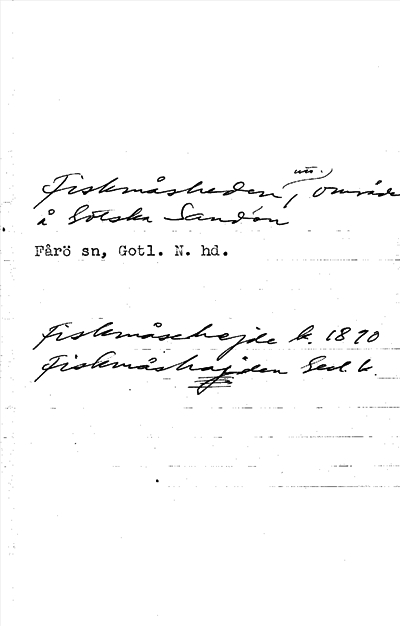 Fiskmåsheden, områd
å Gotska Sandön
Fårö sn, Gotl. N. hd.
Fiskmåsehejde k. 1870
Fiskmåshajden Geol. k.